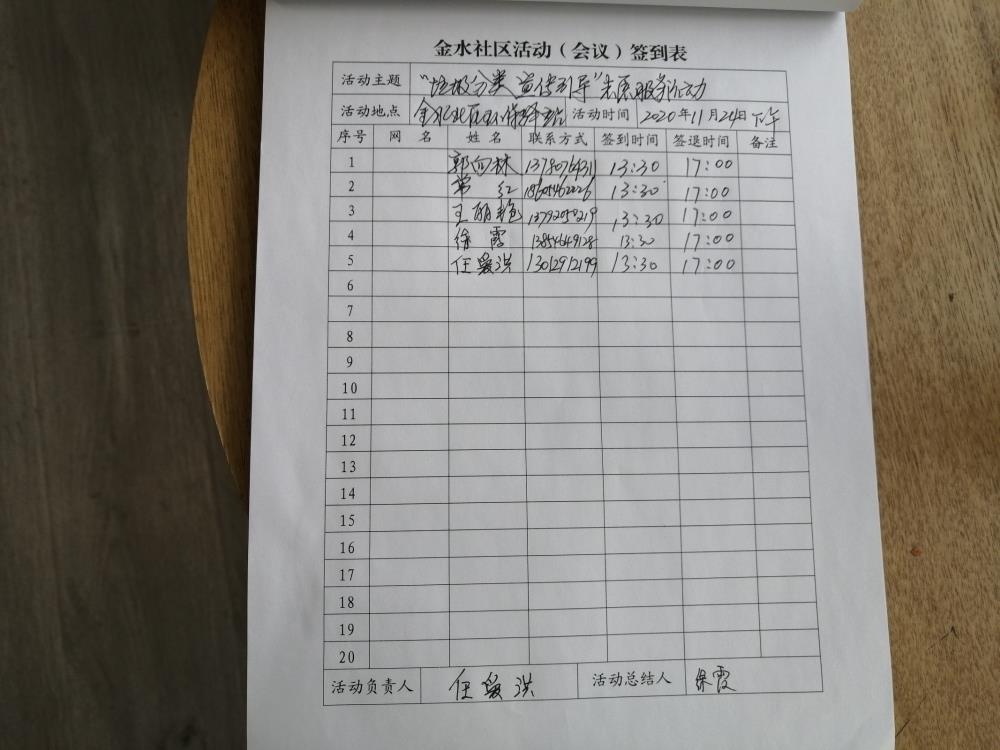 金水社区活动（会议）签到表
活动主题 “垃圾分类 宣传引导”志愿服务活动
活动地点 金水社区环保驿站 活动时间 2020年11月24日下午
序号 网 名 姓 名 联系方式 签到时间 签退时间 备注
1 郭向林 13780764311 13:30 17:00
2 常 红 18605462226 13:30 17:00
3 王丽艳 13792050219 13:30 17:00
4 徐 霞 13854649128 13:30 17:00
5 任爱洪 13012912199 13:30 17:00
6
7
8
9
10
11
12
13
14
15
16
17
18
19
20
活动负责人 任爱洪 活动总结人 徐霞